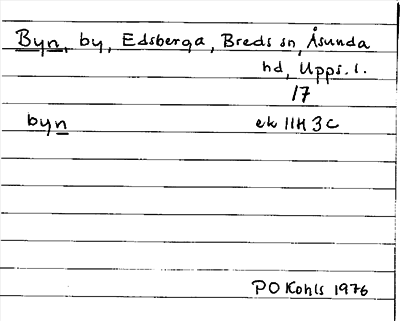 Byn, by, Edsberga, Breds sn, Åsunda
hd, Upps. l.
17
byn ek 11H 3c
PO Kohls 1976